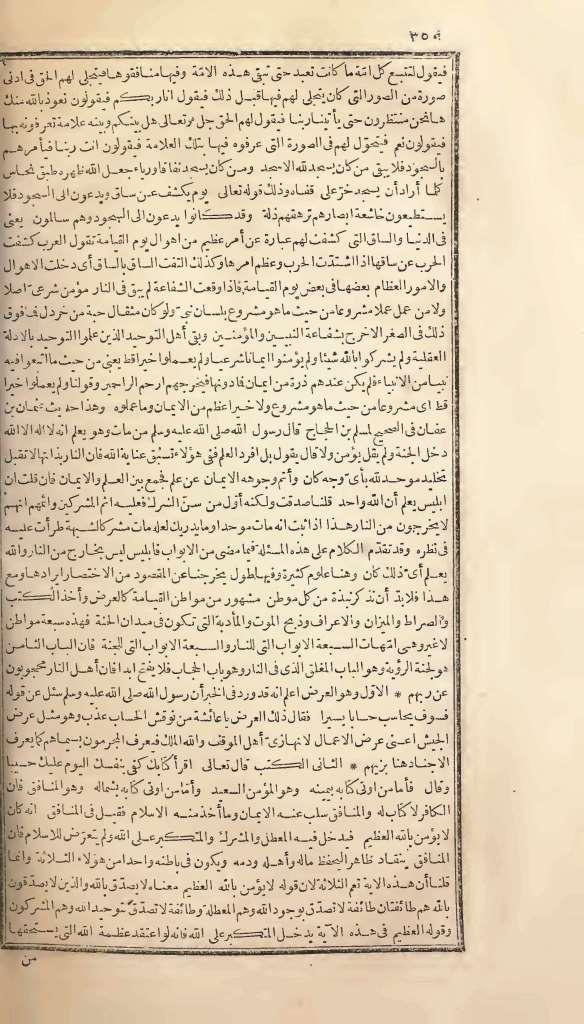 ٣٥٠
فيقول لتتبع كل امّة ما كانت تعبد حتى تبقى هذه الامّة وفيها منافقوها فيتجلى لهم الحق فى ادنى
صورة من الصور التى كان يتجلى لهم فيها قبل ذلك فيقول انا ربكم فيقولون نعوذ بالله منك
هانحن منتظرون حتى يأتينا ربنا فيقول لهم الحق جل وتعالى هل بينكم وبينه علامة تعرفونه بها
فيقولون نعم فيتحوّل لهم فى الصورة التى عرفوه فيها بتلك العلامة فيقولون انت ربنا فيأمرهم
بالسجود فلا يبقى من كان يسجد لله الا سجد ومن كان يسجد اتقاء ورياء جعل الله ظهره طبق نحاس
كلما أراد أن يسجد خرّ على قفاه وذلك قوله تعالى يوم يكشف عن ساق ويدعون الى السجود فلا
يستطيعون خاشعة ابصارهم ترهقهم ذلة وقد كانوا يدعون الى السجود وهم سالمون يعنى
فى الدنيا والساق التى كشفت لهم عبارة عن أمر عظيم من اهوال يوم القيامة تقول العرب كشفت
الحرب عن ساقها اذا اشتدّت الحرب وعظم امرها وكذلك التفت الساق بالساق أى دخلت الاهوال
والامور العظام بعضها فى بعض يوم القيامة فاذا وقعت الشفاعة لم يبق فى النار مؤمن شرعىّ اصلا
ولا من عمل عملا مشروعا من حيث ما هو مشروع بلسان نبىّ ولو كان مثقال حبة من خردل فما فوق
ذلك فى الصغر الا خرج بشفاعة النبيين والمؤمنين وبقى أهل التوحيد الذين علموا التوحيد بالادلة
العقلية ولم يشركوا بالله شيئا ولم يؤمنوا ايمانا شرعيا ولم يعملوا خيرا قط يعنى من حيث ما اتبعوا فيه
نبيا من الانبياء فلم يكن عندهم ذرة من ايمان فما دونها فيخرجهم ارحم الراحمين وقولنا ولم يعملوا خيرا
قط اى مشروعا من حيث ما هو مشروع ولا خيرا عظم من الايمان وما عملوه وهذا حديث عثمان بن
عفان فى الصحيح لمسلم بن الحجاج قال رسول الله صلى الله عليه وسلم من مات وهو يعلم انه لا اله الا الله
دخل الجنة ولم يقل يؤمن ولا قال يقول بل افرد العلم ففى هؤلاء تسبق عناية الله فان النار بذاتها لا تقبل
تخليد موحد لله بأى وجه كان وأتم وجوهه الايمان عن علم فجمع بين العلم والايمان فان قلت ان
ابليس يعلم أن الله واحد قلنا صدقت ولكنه أوّل من سنّ الشرك فعليه اثم المشركين واثمهم انهم
لا يخرجون من النار هذا اذا ثبت انه مات موحدا وما يدريك لعله مات مشركا لشبهة طرأت عليه
فى نظره وقد تقدّم الكلام على هذه المسئلة فيما مضى من الابواب فابليس ليس بخارج من النار والله
يعلم أىّ ذلك كان وهنا علوم كثيرة وفيها طول يخرجنا عن المقصود من الاختصار ايرادها ومع
هذا فلا بدّ أن نذكر نبذة من كل موطن مشهور من مواطن القيامة كالعرض وأخذ الكتب
والصراط والميزان والاعراف وذبح الموت والمأدبة التى تكون فى ميدان الجنة فهذه سبعة مواطن
لا غير وهى امّهات السبعة الابواب التى للنار والسبعة الابواب التى للجنة فان الباب الثامن
هو لجنة الرؤية وهو الباب المغلق الذى فى النار وهو باب الحجاب فلا يفتح ابدا فان أهل النار محجوبون
عن ربهم * الاوّل وهو العرض اعلم انه قد ورد فى الخبر أن رسول الله صلى الله عليه وسلم سئل عن قوله
فسوف يحاسب حسابا يسيرا فقال ذلك العرض يا عائشة من نوقش الحساب عذب وهو مثل عرض
الجيش اعنى عرض الاعمال لانها زىّ أهل الموقف والله الملك فيعرف المجرمون بسيماهم كما يعرف
الاجناد هنا بزيهم * الثانى الكتب قال تعالى اقرأ كتابك كفى بنفسك اليوم عليك حسيبا
وقال فأما من اوتى كتابه بيمينه وهو المؤمن السعيد وأمّا من اوتى كتابه بشماله وهو المنافق فان
الكافر لا كتاب له والمنافق سلب عنه الايمان وما أخذ منه الاسلام فقيل فى المنافق انه كان
لا يؤمن بالله العظيم فيدخل فيه المعطل والمشرك والمتكبر على الله ولم يتعرّض للاسلام فان
المنافق ينقاد ظاهرا ليحفظ ماله وأهله ودمه ويكون فى باطنه واحدا من هؤلاء الثلاثة وانما
قلنا أن هذه الآية تعم الثلاثة لان قوله لا يؤمن بالله العظيم معناه لا يصدّق بالله والذين لا يصدقون
بالله هم طائفتان طائفة لا تصدّق بوجود الله وهم المعطلة وطائفة لا تصدّق بتوحيد الله وهم المشركون
وقوله العظيم فى هذه الآية يدخل المتكبر على الله فانه لو اعتقد عظمة الله التى يستحقها
من